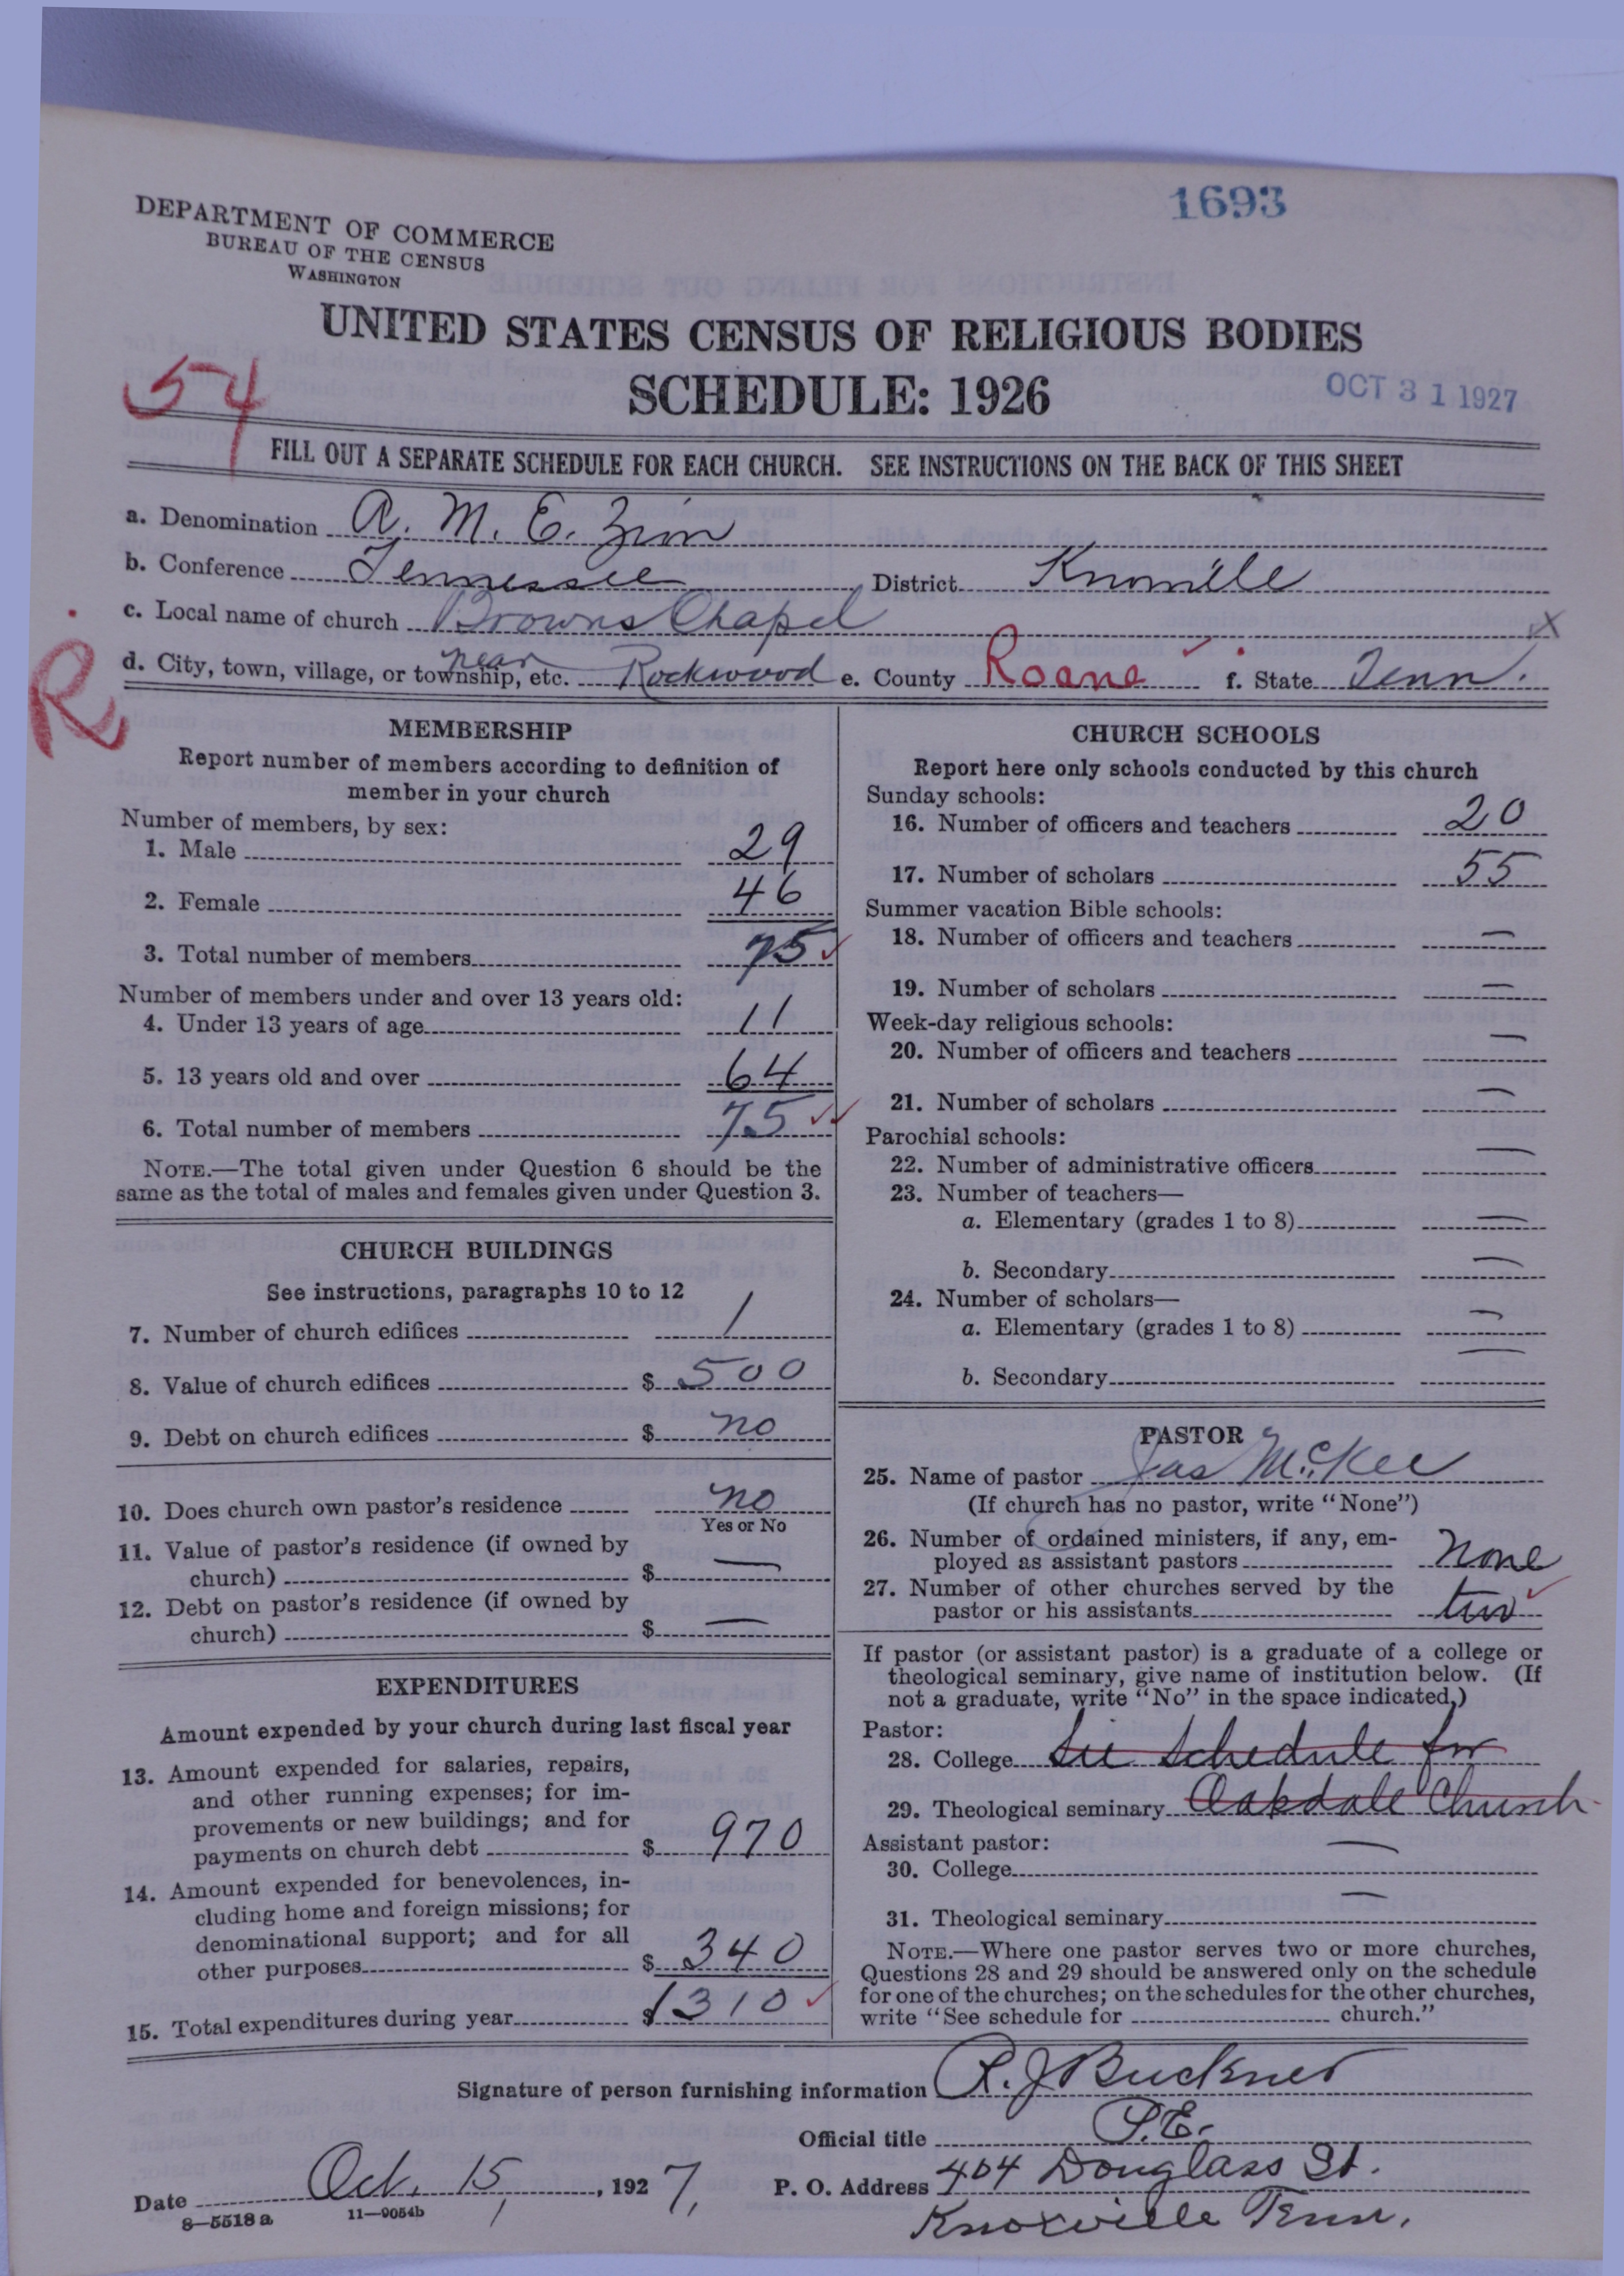 1693
DEPARTMENT OF COMMERCE
BUREAU OF THE CENSUS
WASHINGTON
UNITED STATES CENSUS OF RELIGIOUS BODIES
SCHEDULE: 1926
OCT 31 1927
54
FILL OUT A SEPARATE SCHEDULE FOR EACH CHURCH. SEE INSTRUCTIONS ON THE BACK OF THIS SHEET
a. Denomination A. M. E. Zion
b. Conference Tennessee District Knoxville
c. Local name of church Browns Chapel
d. City, town, village, or township, etc. near Rockwood e. County Roane f. State Tenn.
R
MEMBERSHIP
Report number of members according to definition of
member in your church
Number of members, by sex:
1. Male 29
2. Female 46
3. Total number of members 75
Number of members under and over 13 years old:
4. Under 13 years of age 11
5. 13 years old and over 64
6. Total number of members 75
NOTE.—The total given under Question 6 should be the
same as the total of males and females given under Question 3.
CHURCH BUILDINGS
See instructions, paragraphs 10 to 12
7. Number of church edifices 1
8. Value of church edifices $ 500
9. Debt on church edifices $ no
10. Does church own pastor's residence no
Yes or No
11. Value of pastor's residence (if owned by
church) $ —
12. Debt on pastor's residence (if owned by
church) $ —
EXPENDITURES
Amount expended by your church during last fiscal year
13. Amount expended for salaries, repairs,
and other running expenses; for im-
provements or new buildings; and for
payments on church debt $ 970
14. Amount expended for benevolences, in-
cluding home and foreign missions; for
denominational support; and for all
other purposes $ 340
15. Total expenditures during year $ 1310
CHURCH SCHOOLS
Report here only schools conducted by this church
Sunday schools:
16. Number of officers and teachers 20
17. Number of scholars 55
Summer vacation Bible schools:
18. Number of officers and teachers —
19. Number of scholars —
Week-day religious schools:
20. Number of officers and teachers —
21. Number of scholars —
Parochial schools:
22. Number of administrative officers —
23. Number of teachers—
a. Elementary (grades 1 to 8) —
b. Secondary —
24. Number of scholars—
a. Elementary (grades 1 to 8) —
b. Secondary —
PASTOR
25. Name of pastor Jas McKee
(If church has no pastor, write "None")
26. Number of ordained ministers, if any, em-
ployed as assistant pastors none
27. Number of other churches served by the
pastor or his assistants two
If pastor (or assistant pastor) is a graduate of a college or
theological seminary, give name of institution below. (If
not a graduate, write "No" in the space indicated.)
Pastor:
28. College See schedule for
29. Theological seminary Oakdale Church
Assistant pastor:
30. College —
31. Theological seminary —
NOTE.—Where one pastor serves two or more churches,
Questions 28 and 29 should be answered only on the schedule
for one of the churches; on the schedules for the other churches,
write "See schedule for church."
Signature of person furnishing information R. J. Buckner
Official title P.E.
Date Oct. 15, 1927, P. O. Address 404 Douglass St.
8—5518 a 11—9054b Knoxville Tenn.